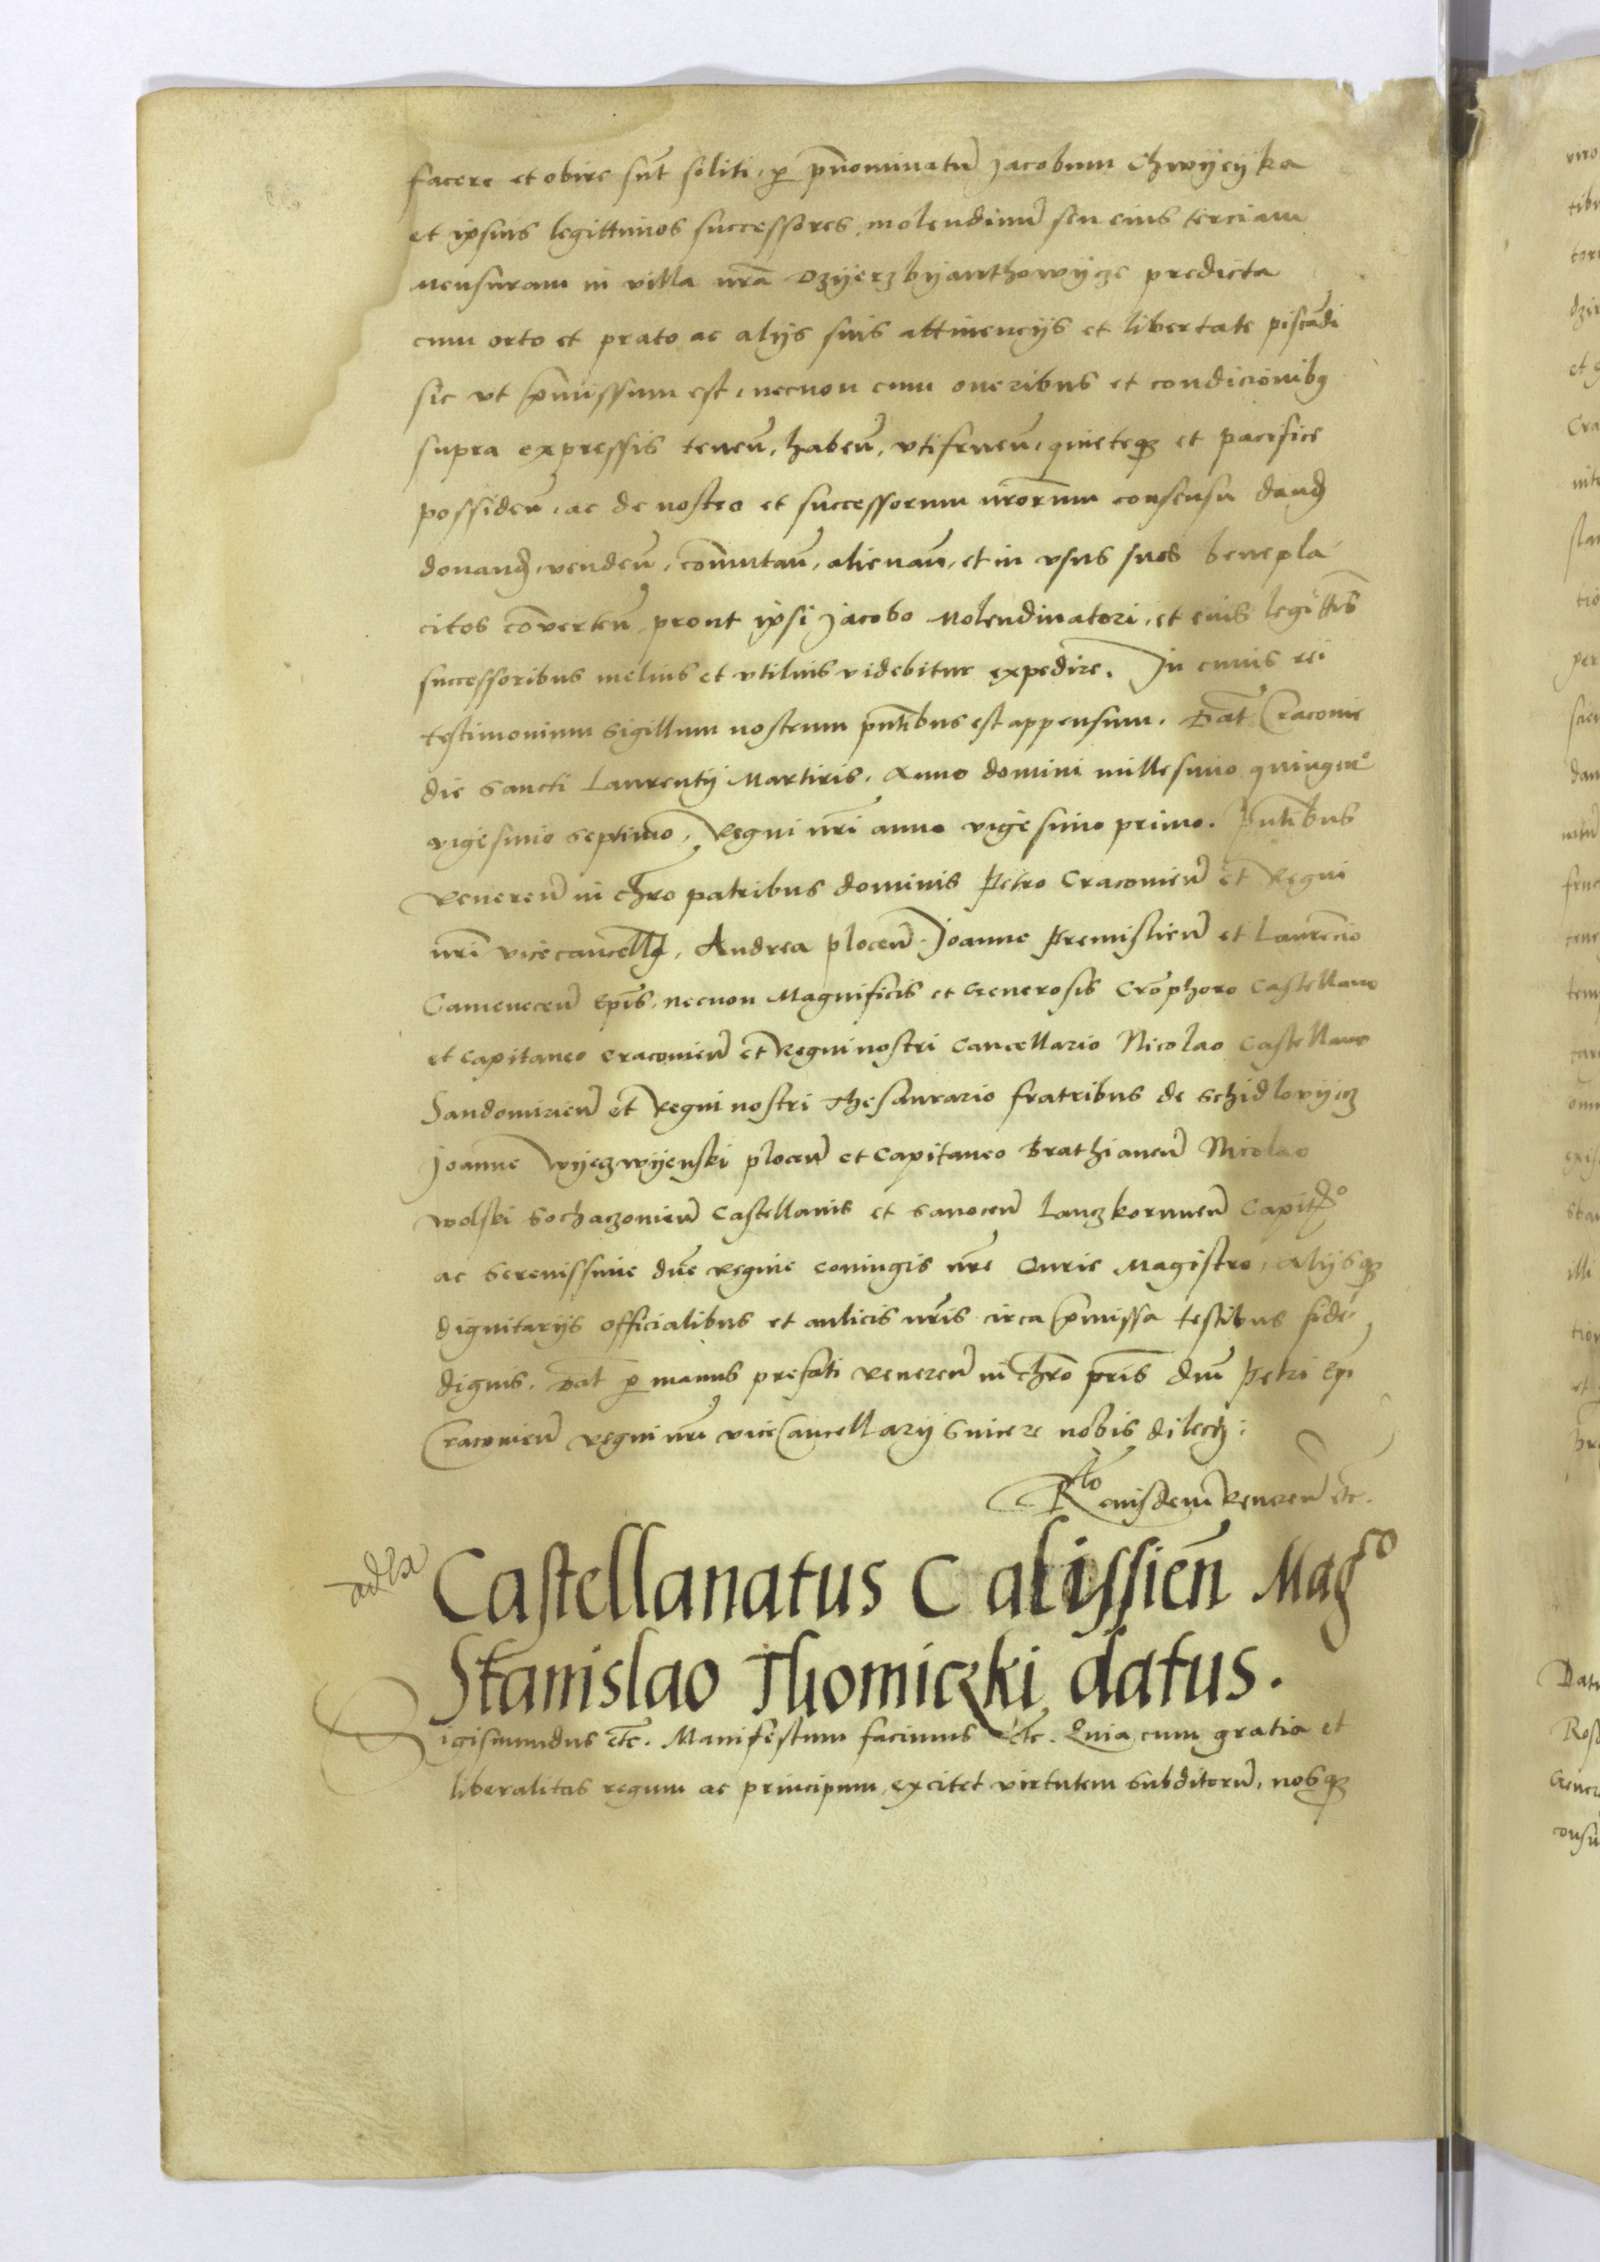 facere et obire sūt soliti, p p̄nominatū Jacobum Chwyeyka
et ipsius legittimos successores molendinū seu eius terciam
mensuram in villa nr̄a Dzyerzbyanthowycze predicta
cum orto et prato ac alijs suis attinencijs et libertate piscādi
sic vt p̄missum est, necnon cum oneribus et condicionibꝯ
supra expressis teneñ, habeñ, vtifrueñ, quieteqꝫ et pacifice
possideñ, ac de nostro et successorum nr̄orum consensu dand
donand, vendeñ, com̄utañ, alienañ, et in vsus suos benepla
citos cōverteñ prout ipsi Jacobo Molendinatori, et eius legittīs
successoribus melius et vtilius videbitur expedire. In cuius rei
testimonium sigillum nostrum pn̄tibus est appensum. Dat̄ Cracovie
die Sancti Laurentij Martiris. Anno domini millesimo quingenº
vigesimo septimo, Regni nr̄i anno vigesimo primo. Pn̄tibus
Reuereñ in chr̄o patribus dominis Petro Cracovieñ et Regni
nr̄i vicecancellꝯ, Andrea ploceñ Joanne Premislieñ et Laurēcio
Cameneceñ Ep̄is, necnon Magnificis et Generosis Cr̄ophoro Castellano
et Capitaneo Cracovieñ et Regni nostri Cancellario Nicolao Castellano
Sandomirieñ et Regni nostri Thesaurario fratribus de Schidlovycz
Joanne Wyeczwyenski ploceñ et Capitaneo Brathianeñ Nicolao
Wolski Sochaczovieñ Castellanis et Sanoceñ Lanczkoruneñ Capitꝰº
ac Serenissime dn̄e Regine coniugis nr̄e Curie Magistro, Alijsqꝫ
dignitarijs officialibus et aulicis nr̄is circa p̄missa testibus fide
dignis. Dat̄ p manus prefati Reuereñ in chr̄o pr̄is dn̄i Petri Ep̄i
Cracovieñ Regni nr̄i viceCancellarij Sincere nobis dilecti
Rˡº eiusdem Reuereñ etc.
Castellanatus Calissieñ Magᶜᵒ
Stanislao Thomiczki datus.
Sigismundus etc. Manifestum facimus etc. Quia cum gratia et
liberalitas regum ac principum excitet virtutem subditorū, nosqꝫ